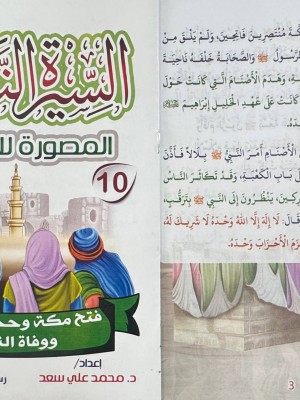 السيرة
المصورة
10
فتح مكة
ووفاة
إعداد/
د. محمد علي سعد
مُنْتَصِرِينَ فَاتِحِينَ، وَلَمْ يَلْقَ مِنْ
الرَّسُولُ ﷺ وَالصَّحَابَةُ خَلْفَهُ نَاحِيَةَ
وَهَدَمَ الْأَصْنَامَ الَّتِي كَانَتْ حَوْلَ
كَانَتْ عَلَى عَهْدِ الْخَلِيلِ إِبْرَاهِيمَ
الْأَصْنَامِ أَمَرَ النَّبِيُّ ﷺ بِلَالًا فَأَذَّنَ
بَابِ الْكَعْبَةِ، وَقَدْ تَكَاثَرَ النَّاسُ
يَنْظُرُونَ إِلَى النَّبِيِّ ﷺ بِتَرَقُّبٍ،
قَالَ: لَا إِلَهَ إِلَّا اللهُ وَحْدَهُ لَا شَرِيكَ لَهُ،
الْأَحْزَابَ وَحْدَهُ.
3